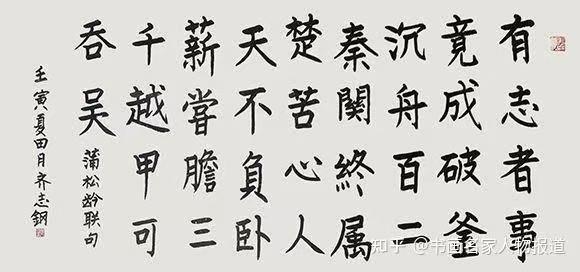 有志者事
竟成破釜
沉舟百二
秦關終属
楚苦心人
天不負卧
薪嘗膽三
千越甲可
吞吴
蒲松龄联句
壬寅夏四月齐志鋼
知乎 @书画名家人物报道